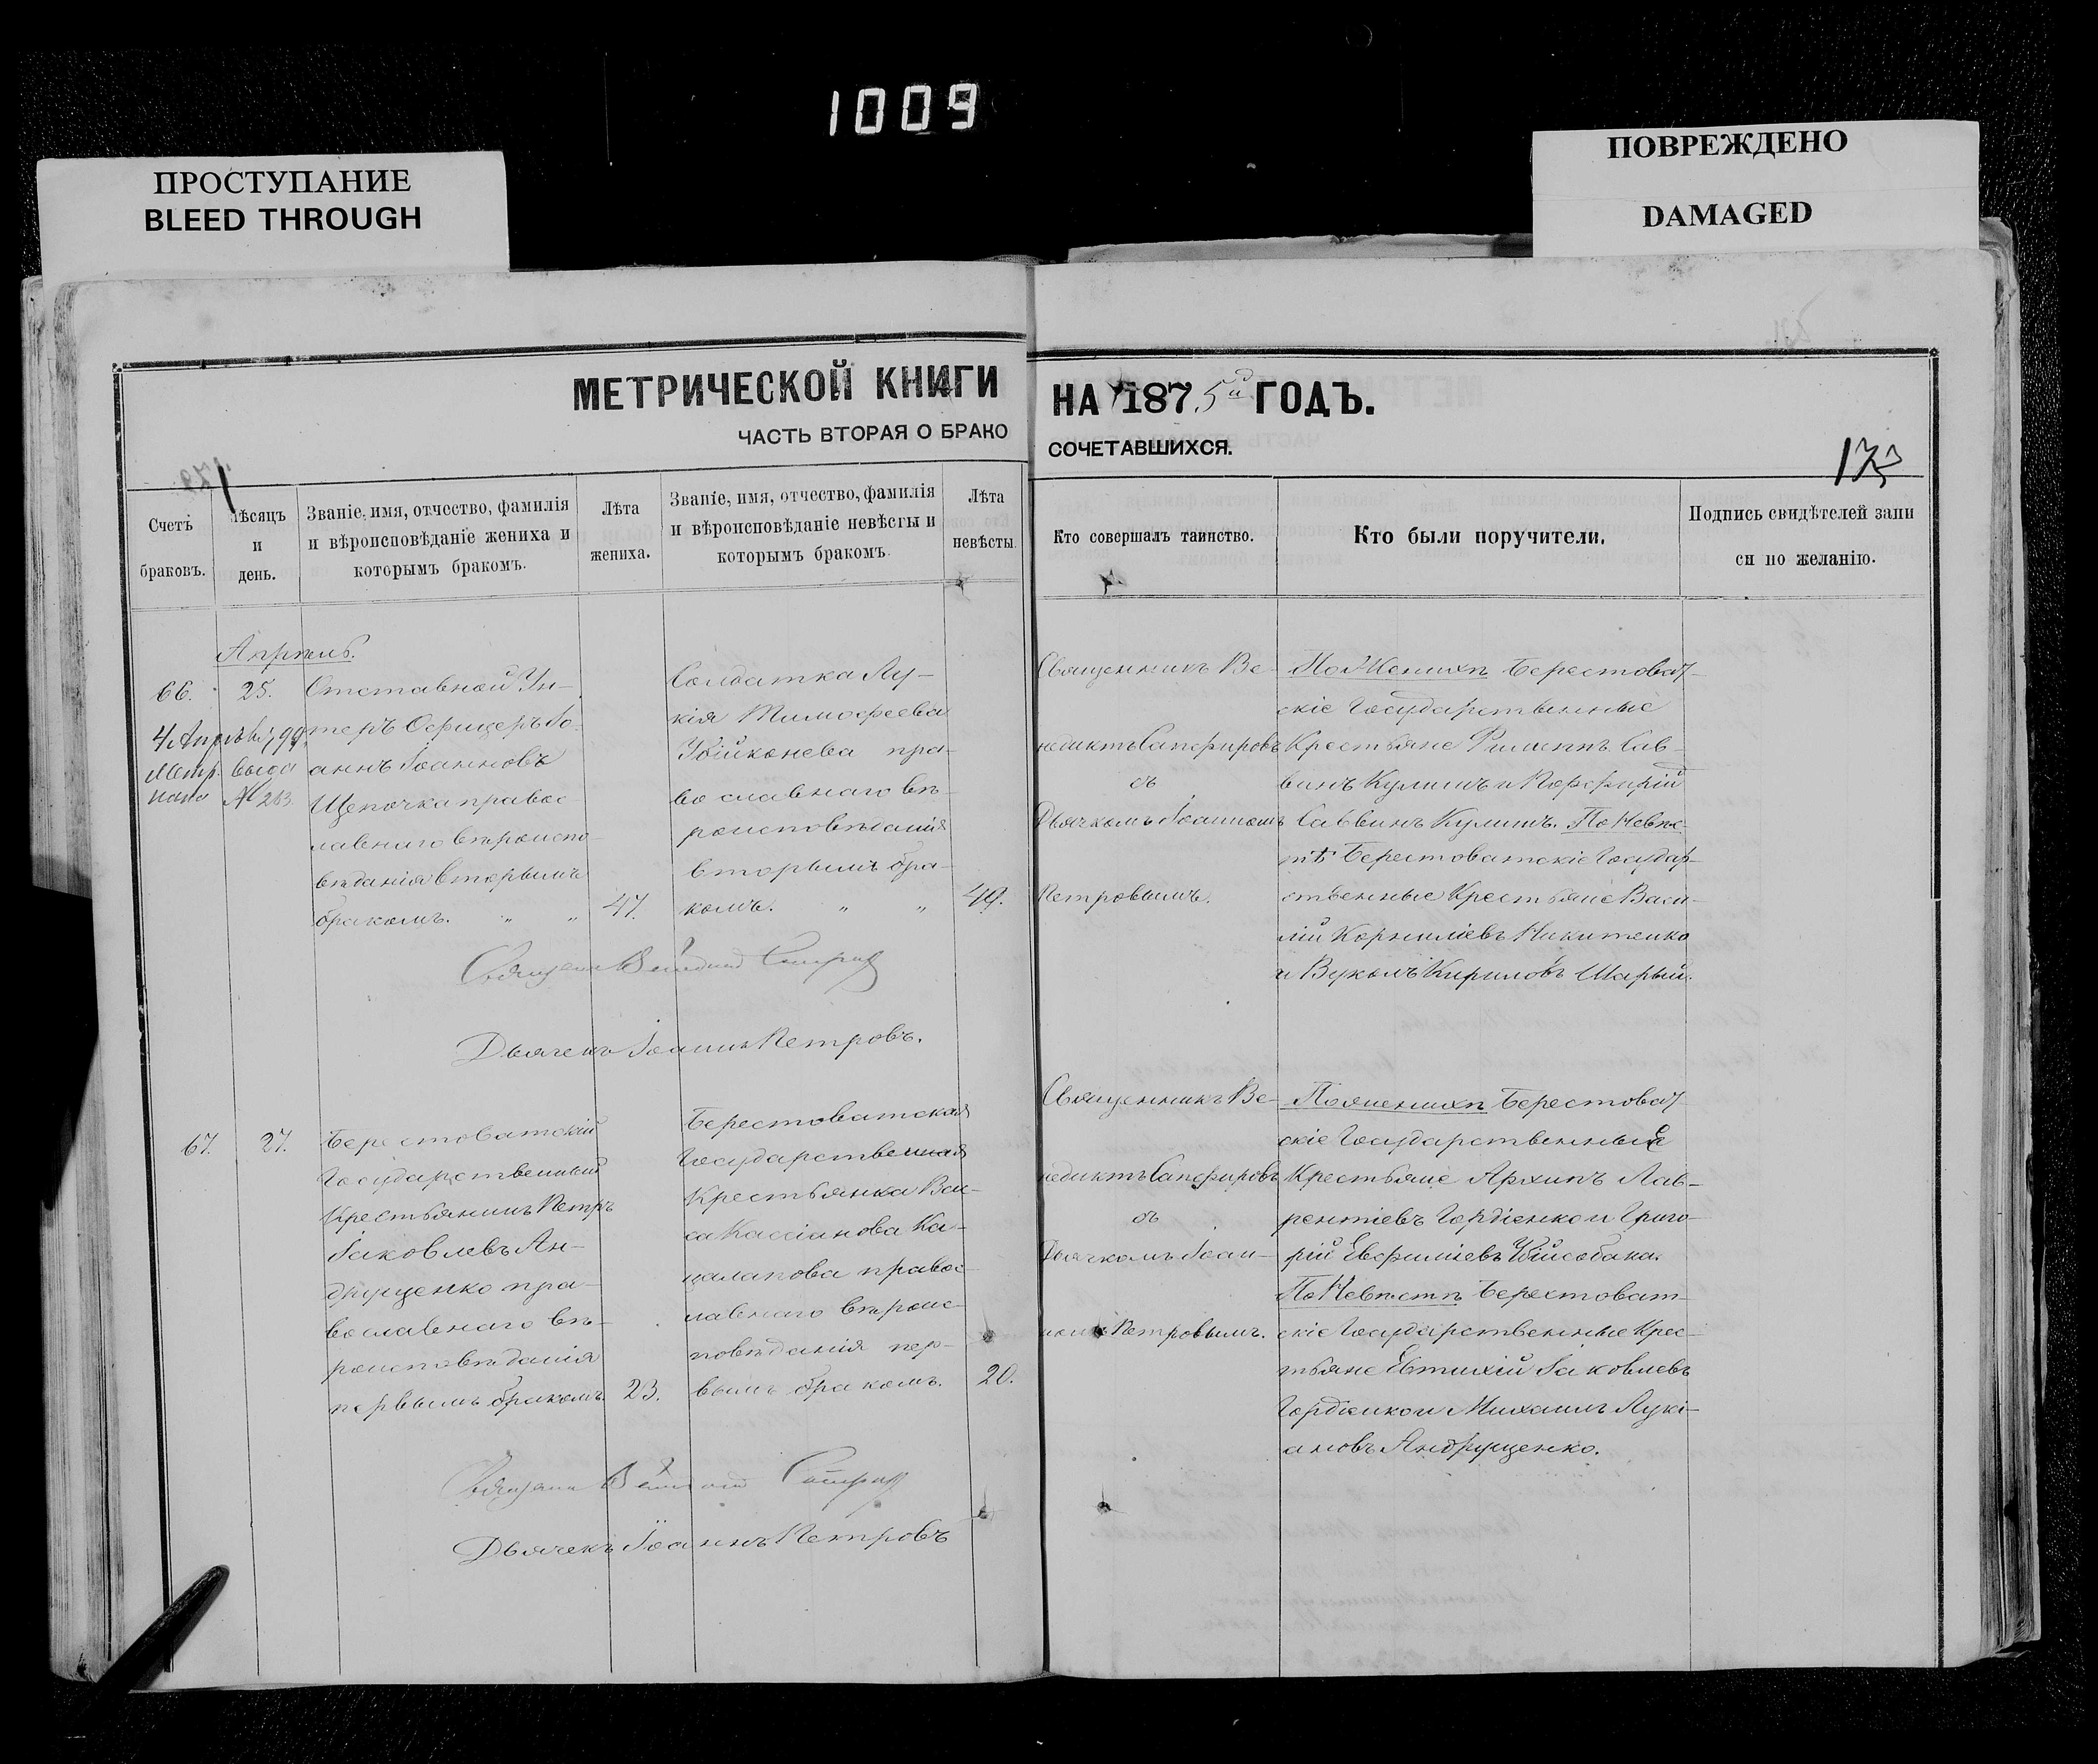 1009
ПРОСТУПАНИЕ
BLEED THROUGH
ПОВРЕЖДЕНО
DAMAGED
МЕТРИЧЕСКОЙ КНИГИ
НА 1875й ГОДЪ.
ЧАСТЬ ВТОРАЯ О БРАКО
СОЧЕТАВШИХСЯ.
173
Счетъ
браковъ.
Мѣсяцъ
и
день.
Званіе, имя, отчество, фамилія
и вѣроисповѣданіе жениха и
которымъ бракомъ.
Лѣта
жениха.
Званіе, имя, отчество, фамилія
и вѣроисповѣданіе невѣсты и
которымъ бракомъ.
Лѣта
невѣсты.
Кто совершалъ таинство.
Кто были поручители.
Подпись свидѣтелей запи
си по желанію.
Апрѣль.
66.
25.
4 Апрѣля 99
Метр. выда
на № 203.
Отставной Ун-
теръ Офицеръ Іо-
аннъ Іоанновъ
Щепочка правос
лавнаго вѣроиспо-
вѣданія вторымъ
бракомъ. " "
47.
Солдатка Лу-
кія Тимофеева
пра-
вославнаго вѣ-
роисповѣданія
вторымъ бра-
комъ. " "
49.
Священникъ Ве-
недиктъ Сапфировъ
съ
Дьячкомъ Іоанномъ
Петровымъ.
По Женихѣ Берестоват-
скіе Государственные
Крестьяне Филиппъ Сав-
винъ Кулишъ и Порфирій
Саввинъ Кулишъ. По Невѣс-
тѣ Берестоватскіе Государ-
ственные Крестьяне Васи-
лій Корниліевъ Никитенко
и Вуколъ Кириловъ Шарый.
Дьячекъ Іоаннъ Петровъ.
67.
27.
Берестоватскій
Государственный
Крестьянинъ Петръ
Іаковлевъ Ан-
друщенко пра-
вославнаго вѣ-
роисповѣданія
первымъ бракомъ.
23.
Берестоватская
Государственная
Крестьянка Вас-
са Кассіанова Ка-
цалапова правос-
лавнаго вѣроис-
повѣданія пер-
вымъ бракомъ.
20.
Священникъ Ве-
недиктъ Сапфировъ
съ
Дьячкомъ Іоан-
номъ Петровымъ.
По женихѣ Берестоват-
скіе Государственные
Крестьяне Архипъ Лав-
рентіевъ Гордіенко и Григо-
рій Евфиміевъ
По Невѣстѣ Берестоват-
скіе Государственные Крес-
тьяне Евтихій Іаковлевъ
Гордіенко и Михаилъ Лукі-
ановъ Андрущенко.
Дьячекъ Іоаннъ Петровъ